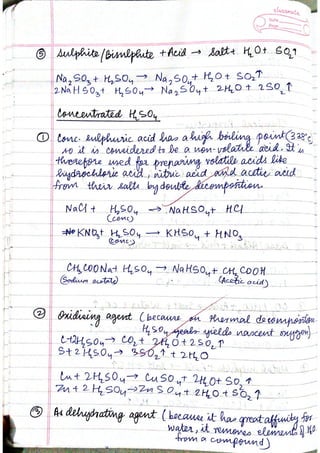 classmate
Date
Page
⑤ Sulphite/Bisulphite + Acid → Salt + H₂O + SO₂↑
Na₂SO₃ + H₂SO₄ → Na₂SO₄ + H₂O + SO₂↑
2NaHSO₃ + H₂SO₄ → Na₂SO₄ + 2H₂O + 2SO₂↑
Concentrated H₂SO₄
① Conc. sulphuric acid has a high boiling point (338°C)
so it is considered to be a non-volatile acid. It is
therefore used for preparing volatile acids like
hydrochloric acid, nitric acid and acetic acid
from their salts by double decomposition.
NaCl + H₂SO₄ → NaHSO₄ + HCl
(conc)
KNO₃ + H₂SO₄ → KHSO₄ + HNO₃
(conc)
CH₃COONa + H₂SO₄ → NaHSO₄ + CH₃COOH
(Sodium acetate) (Acetic acid)
② Oxidising agent (because on thermal decomposition
H₂SO₄ yields nascent oxygen)
C + 2H₂SO₄ → CO₂ + 2H₂O + 2SO₂↑
S + 2H₂SO₄ → 3SO₂↑ + 2H₂O
Cu + 2H₂SO₄ → CuSO₄ + 2H₂O + SO₂↑
Zn + 2H₂SO₄ → ZnSO₄ + 2H₂O + SO₂↑
③ As dehydrating agent (because it has great affinity for
water, it removes elements of H₂O
from a compound)